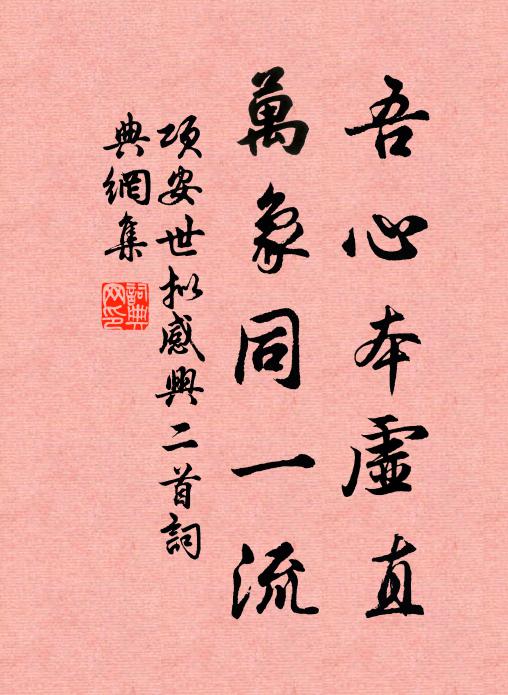 吾心本虛直
萬象同一流
項安世拟感興二首詞
典網集
詞典
网印